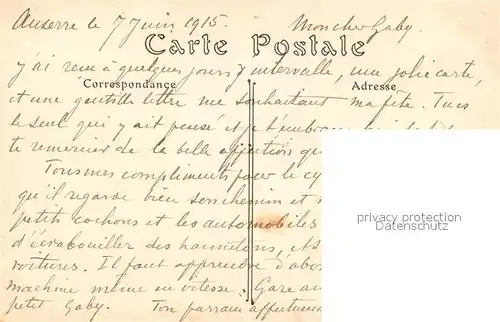 Auxerre le 7 Juin 1915. Mon cher Gaby.
Carte Postale
j'ai reçu à quelques jours d'intervalle, une jolie carte,
Correspondance Adresse
et une gentille lettre me souhaitant ma fête. Tu es
le seul qui y ait pensé et je t'embrasse
te remercier de la belle affection
Tous mes compliments pour le
qu'il regarde bien son chemin et
petits cochons et les automobiles
privacy protection
Datenschutz
d'écrabouiller des hannetons,
voitures. Il faut apprendre
machine même en vitesse. Gare au
petit Gaby. Ton parrain